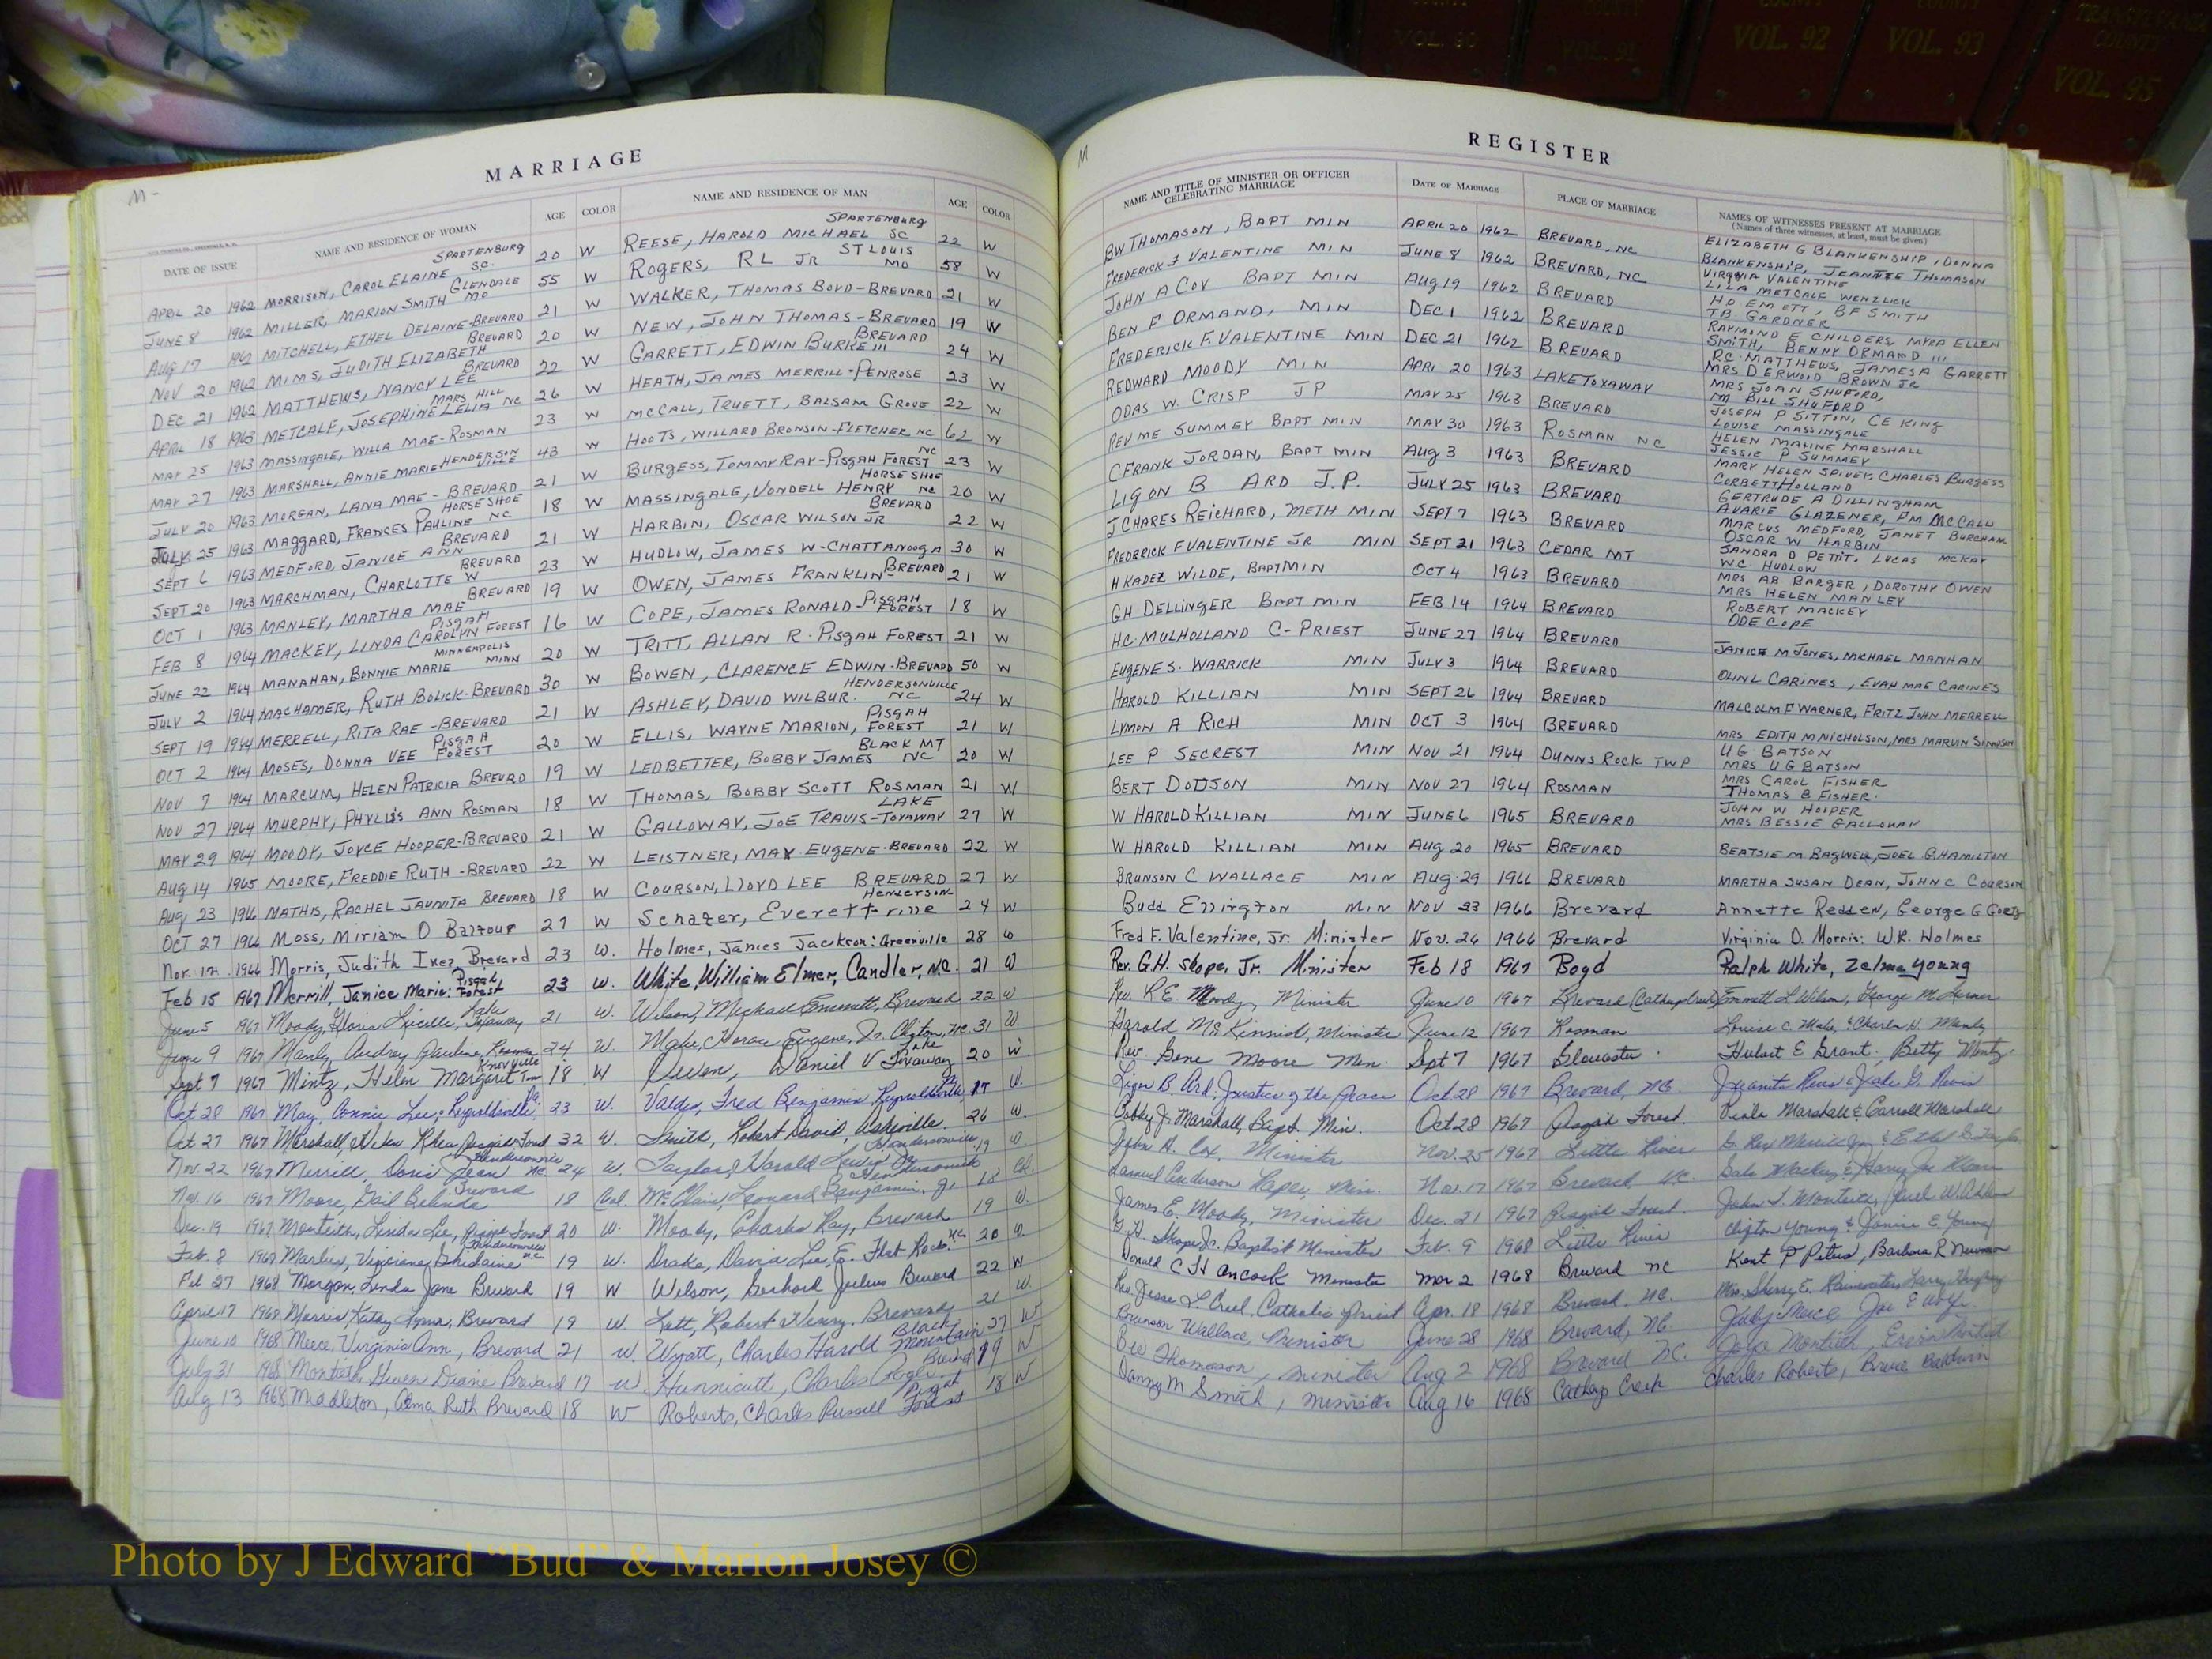 VOL. 90
VOL. 91
COUNTY
VOL. 92
COUNTY
VOL. 93
TRANSYLVANIA
COUNTY
VOL. 95
M-
MARRIAGE
DATE OF ISSUE NAME AND RESIDENCE OF WOMAN AGE COLOR NAME AND RESIDENCE OF MAN AGE COLOR
APRIL 20 1962 MORRISON, CAROL ELAINE SPARTENBURG SC. 20 W REESE, HAROLD MICHAEL SPARTENBURG SC 22 W
JUNE 8 1962 MILLER, MARION SMITH GLENDALE MO 55 W ROGERS, RL JR ST LOUIS MO 58 W
AUG 17 1962 MITCHELL, ETHEL DELAINE-BREVARD 21 W WALKER, THOMAS BOYD-BREVARD 21 W
NOV 20 1962 MIMS, JUDITH ELIZABETH BREVARD 20 W NEW, JOHN THOMAS-BREVARD 19 W
DEC 21 1962 MATTHEWS, NANCY LEE BREVARD 22 W GARRETT, EDWIN BURKE III BREVARD 24 W
APRIL 18 1963 METCALF, JOSEPHINE LELIA MARS HILL NC 26 W HEATH, JAMES MERRILL-PENROSE 23 W
MAY 25 1963 MASSINGALE, WILLA MAE-ROSMAN 23 W McCALL, TRUETT, BALSAM GROVE 22 W
MAY 27 1963 MARSHALL, ANNIE MARIE HENDERSONVILLE 43 W HOOTS, WILLARD BRONSON-FLETCHER NC 62 W
JULY 20 1963 MORGAN, LANA MAE-BREVARD 21 W BURGESS, TOMMY RAY-PISGAH FOREST NC 23 W
JULY 25 1963 MAGGARD, FRANCES PAULINE HORSESHOE NC 18 W MASSINGALE, VONDELL HENRY HORSE SHOE NC 20 W
SEPT 6 1963 MEDFORD, JANICE ANN BREVARD 21 W HARBIN, OSCAR WILSON JR BREVARD 22 W
SEPT 20 1963 MARCHMAN, CHARLOTTE W BREVARD 23 W HUDLOW, JAMES W-CHATTANOOGA 30 W
OCT 1 1963 MANLEY, MARTHA MAE BREVARD 19 W OWEN, JAMES FRANKLIN-BREVARD 21 W
FEB 8 1964 MACKEY, LINDA CAROLYN PISGAH FOREST 16 W COPE, JAMES RONALD-PISGAH FOREST 18 W
JUNE 22 1964 MANAHAN, BONNIE MARIE MINNEAPOLIS MINN 20 W TRITT, ALLAN R. PISGAH FOREST 21 W
JULY 2 1964 MACHAMER, RUTH BOLICK-BREVARD 30 W BOWEN, CLARENCE EDWIN-BREVARD 50 W
SEPT 19 1964 MERRELL, RITA RAE-BREVARD 21 W ASHLEY, DAVID WILBUR. HENDERSONVILLE NC 24 W
OCT 2 1964 MOSES, DONNA VEE PISGAH FOREST 20 W ELLIS, WAYNE MARION, PISGAH FOREST 21 W
NOV 7 1964 MARCUM, HELEN PATRICIA BREVRD 19 W LEDBETTER, BOBBY JAMES BLACK MT NC 20 W
NOV 27 1964 MURPHY, PHYLLIS ANN ROSMAN 18 W THOMAS, BOBBY SCOTT ROSMAN 21 W
MAY 29 1964 MOODY, JOYCE HOOPER-BREVARD 21 W GALLOWAY, JOE TRAVIS-LAKE TOXAWAY 27 W
AUG 14 1965 MOORE, FREDDIE RUTH-BREVARD 22 W LEISTNER, MAX EUGENE-BREVARD 22 W
AUG 23 1966 MATHIS, RACHEL JAUNITA BREVARD 18 W COURSON, LLOYD LEE BREVARD 27 W
OCT 27 1966 Moss, Miriam O Balfour 27 W Schafer, Everett Hendersonville 24 W
Nov. 17 1966 Morris, Judith Inez, Brevard 23 W. Holmes, James Jackson: Greenville 28 W
Feb 15 1967 Merrill, Janice Marie: Pisgah Forest 23 W. White, William Elmer, Candler, N.C. 21 W
June 5 1967 Moody, Gloria Lucille, Lake Toxaway 21 W. Wilson, Michael Emmett, Brevard 22 W
June 9 1967 Manly, Audrey Pauline, Rosman 24 W. Mahe, Horace Eugene, Jr. Clinton, NC. 31 W.
Sept 7 1967 Mintz, Helen Margaret Knoxville Tenn 18 W Owen, Daniel V Lake Toxaway 20 W
Oct 28 1967 May, Connie Lee, Reynoldsville, Pa. 23 W. Valdes, Fred Benjamin, Reynoldsville, Pa 17 W.
Oct 27 1967 Marshall, Helen Rhea, Pisgah Forest 32 W. Smith, Robert David, Asheville 26 W.
Nov. 22 1967 Merrill, Doris Jean Hendersonville NC. 24 W. Taylor, Harold Lewis Jr Hendersonville 19 W.
Nov. 16 1967 Moore, Gail Belinda Brevard 18 Col. McClain, Leonard Benjamin, Jr Hendersonville 18 Col.
Dec. 19 1967 Monteith, Linda Lee, Pisgah Forest 20 W. Moody, Charles Ray, Brevard 19 W.
Feb. 8 1968 Ghislaine Hendersonville NC 19 W. Drake, David Lee, E. Flat Rock NC 20 W.
Feb 27 1968 Morgan, Linda Jane Brevard 19 W Wilson, Gerhard Julius Brevard 22 W
April 17 1968 Morris, Kathy Lynn, Brevard 19 W Lott, Robert Henry. Brevard 21 W
June 10 1968 Meece, Virginia Ann, Brevard 21 W. Wyatt, Charles Harold Black Mountain 27 W
July 31 1968 Monteith, Gwen Diane Brevard 17 W Hunnicutt, Charles Brevard 19 W
Aug 13 1968 Middleton, Alma Ruth Brevard 18 W Roberts, Charles Russell Pisgah Forest 18 W
M
REGISTER
NAME AND TITLE OF MINISTER OR OFFICER CELEBRATING MARRIAGE DATE OF MARRIAGE PLACE OF MARRIAGE NAMES OF WITNESSES PRESENT AT MARRIAGE
(Names of three witnesses, at least, must be given)
BW THOMASON, BAPT MIN APRIL 20 1962 BREVARD, NC ELIZABETH G BLANKENSHIP, DONNA BLANKENSHIP, JEANTTE THOMASON
FREDERICK F VALENTINE MIN JUNE 8 1962 BREVARD, NC VIRGINIA VALENTINE LILA METCALF WENZLICK
JOHN A COX BAPT MIN AUG 19 1962 BREVARD HD EMETT, BF SMITH TB GARDNER
BEN F ORMAND, MIN DEC 1 1962 BREVARD RAYMOND E CHILDERS, MYRA ELLEN SMITH, BENNY ORMAND III
FREDERICK F. VALENTINE MIN DEC 21 1962 BREVARD RC. MATTHEWS, JAMES A GARRETT MRS DERWOOD BROWN JR
R EDWARD MOODY MIN APRI 20 1963 LAKE TOXAWAY MRS JOAN SHUFORD, M BILL SHUFORD
ODAS W. CRISP JP MAY 25 1963 BREVARD JOSEPH P SITTON, CE KING LOUISE MASSINGALE
REV ME SUMMEY BAPT MIN MAY 30 1963 ROSMAN NC HELEN MALINE MARSHALL JESSIE P SUMMEY
C FRANK JORDAN, BAPT MIN AUG 3 1963 BREVARD MARY HELEN SPIVEY, CHARLES BURGESS CORBETT HOLLAND
LIGON B ARD J.P. JULY 25 1963 BREVARD GERTRUDE A DILLINGHAM
J CHARES REICHARD, METH MIN SEPT 7 1963 BREVARD AVARIE GLAZENER, FM McCALL MARCUS MEDFORD, JANET BURCHAM OSCAR W HARBIN
FREDERICK F VALENTINE JR MIN SEPT 21 1963 CEDAR MT SANDRA D PETTIT, LUCAS McKAY WC HUDLOW
H KADEZ WILDE, BAPT MIN OCT 4 1963 BREVARD MRS AB BARGER, DOROTHY OWEN MRS HELEN MANLEY
GH DELLINGER BAPT MIN FEB 14 1964 BREVARD ROBERT MACKEY ODE COPE
HC. MULHOLLAND C-PRIEST JUNE 27 1964 BREVARD JANICE M JONES, MICHAEL MANHAN
EUGENE S. WARRICK MIN JULY 3 1964 BREVARD OLIN L CARINES, EVAH MAE CARINES
HAROLD KILLIAN MIN SEPT 26 1964 BREVARD MALCOLM F WARNER, FRITZ JOHN MERRELL
LYMON A RICH MIN OCT 3 1964 BREVARD MRS EDITH M NICHOLSON, MRS MARVIN SIMPSON
LEE P SECREST MIN NOV 21 1964 DUNNS ROCK TWP UG BATSON MRS UG BATSON
BERT DODSON MIN NOV 27 1964 ROSMAN MRS CAROL FISHER THOMAS B FISHER.
W HAROLD KILLIAN MIN JUNE 6 1965 BREVARD JOHN W HOOPER MRS BESSIE GALLOWAY
W HAROLD KILLIAN MIN AUG 20 1965 BREVARD BEATSIE M BAGWELL, JOEL G. HAMILTON
BRUNSON C WALLACE MIN AUG. 29 1966 BREVARD MARTHA SUSAN DEAN, JOHN C COURSON
Budd Ellington Min Nov 23 1966 Brevard Annette Redden, George G Goetz
Fred F. Valentine, Jr. Minister Nov. 26 1966 Brevard Virginia D. Morris: W.R. Holmes
Rev. G.H. Shope, Jr. Minister Feb 18 1967 Boyd Ralph White, Zelma Young
Rev. R.E. Moody, Minister June 10 1967 Brevard (Catheys Creek) Emmett L Wilson, George M.
Harold McKinnish, Minister June 12 1967 Rosman Louise C. & Charles H. Manly
Rev. Gene Moore Min. Sept 7 1967 Gloucester Hubert E Grant. Betty Mintz.
Ligon B. Ard, Justice of the Peace Oct. 28 1967 Brevard, NC Juanita Nevis & Jake G. Nevis
Bobby J. Marshall, Bapt. Min. Oct 28 1967 Pisgah Forest. Viola Marshall & Carroll Marshall
John A. Cox. Minister Nov. 25 1967 Little River G. Rex Merrill &
Samuel Anderson Min. Nov. 17 1967 Brevard NC. Mackey &
James E. Moody, Minister Dec. 21 1967 Pisgah Forest. John T. Monteith,
G.H. Shope Jr. Baptist Minister Feb. 9 1968 Little River Clifton Young & Janice E. Young
Donald C Hancock Minister Mar 2 1968 Brevard NC Kent P Peters, Barbara R Newman
Rev. Jesse L. Creel. Catholic Priest Apr. 18 1968 Brevard. NC. Mrs. Sherry E.
Brunson Wallace, Minister June 28 1968 Brevard, NC. Judy Meece, Joe E Wolfe
Bw Thomason, Minister Aug 2 1968 Brevard NC. Monteith,
Danny M Smith, Minister Aug 16 1968 Catheys Creek Charles Roberts, Bruce Baldwin
Photo by J Edward “Bud” & Marion Josey ©